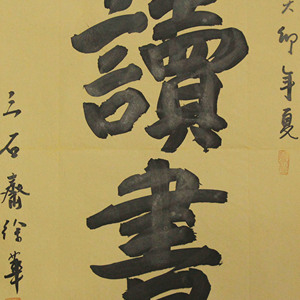 卯年夏
讀書
三石齋徐華